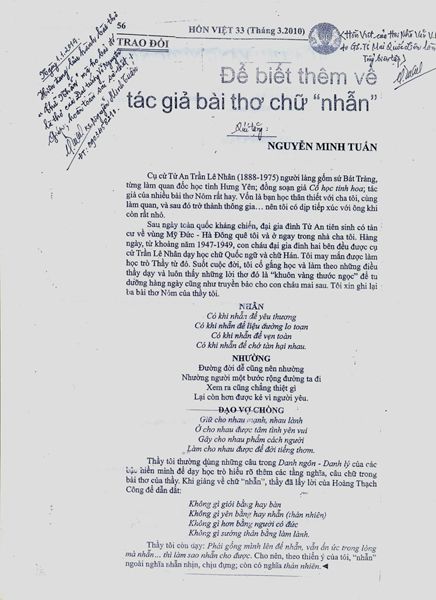 56
HỒN VIỆT 33 (Tháng 3.2010)
TRAO ĐỔI
Để biết thêm về
tác giả bài thơ chữ "nhẫn"
NGUYỄN MINH TUẤN
Cụ cử Tử An Trần Lê Nhân (1888-1975) người làng gốm sứ Bát Tràng,
từng làm quan đốc học tỉnh Hưng Yên; đồng soạn giả Cổ học tinh hoa; tác
giả của nhiều bài thơ Nôm rất hay. Vốn là bạn học thân thiết với cha tôi, cùng
làm quan, và sau đó trở thành thông gia... nên tôi có dịp tiếp xúc với ông khi
còn rất nhỏ.
Sau ngày toàn quốc kháng chiến, đại gia đình Tử An tiên sinh có tản
cư về vùng Mỹ Đức - Hà Đông quê tôi và ở ngay trong nhà cha tôi. Hàng
ngày, từ khoảng năm 1947-1949, con cháu đại gia đình hai bên đều được cụ
cử Trần Lê Nhân dạy học chữ Quốc ngữ và chữ Hán. Tôi may mắn được làm
học trò Thầy từ đó. Suốt cuộc đời, tôi cố gắng học và làm theo những điều
thầy dạy và luôn thấy những lời thơ đó là "khuôn vàng thước ngọc" để tu
dưỡng hàng ngày cũng như truyền bảo cho con cháu mai sau. Tôi xin ghi lại
ba bài thơ Nôm của thầy tôi.
NHẪN
Có khi nhẫn để yêu thương
Có khi nhẫn để liệu đường lo toan
Có khi nhẫn để vẹn toàn
Có khi nhẫn để chớ tàn hại nhau.
NHƯỜNG
Đường đời dễ cũng nên nhường
Nhường người một bước rộng đường ta đi
Xem ra cũng chẳng thiệt gì
Lại còn hơn được kẻ vì người yêu.
ĐẠO VỢ CHỒNG
Giữ cho nhau mạnh, nhau lành
Ở cho nhau được tâm tình yên vui
Gây cho nhau phẩm cách người
Làm cho nhau để đời tiếng thơm.
Thầy tôi thường dùng những câu trong Danh ngôn - Danh lý của các
bậc hiền minh để dạy học trò hiểu rõ thêm các tầng nghĩa, câu chữ trong
bài thơ của thầy. Khi giảng về chữ "nhẫn", thầy đã lấy lời của Hoàng Thạch
Công để dẫn dắt:
Không gì giỏi bằng hay bàn
Không gì yên bằng hay nhẫn (nhàn nhiên)
Không gì hơn bằng người có đức
Không gì sướng thân bằng làm lành.
Thầy tôi còn dạy: Phải gồng mình lên để nhẫn, vẫn ẩn ức trong lòng
mà nhẫn... thì làm sao nhẫn cho được. Cho nên, theo thiển ý của tôi, "nhẫn"
ngoài nghĩa nhẫn nhịn, chịu đựng; còn có nghĩa thản nhiên.